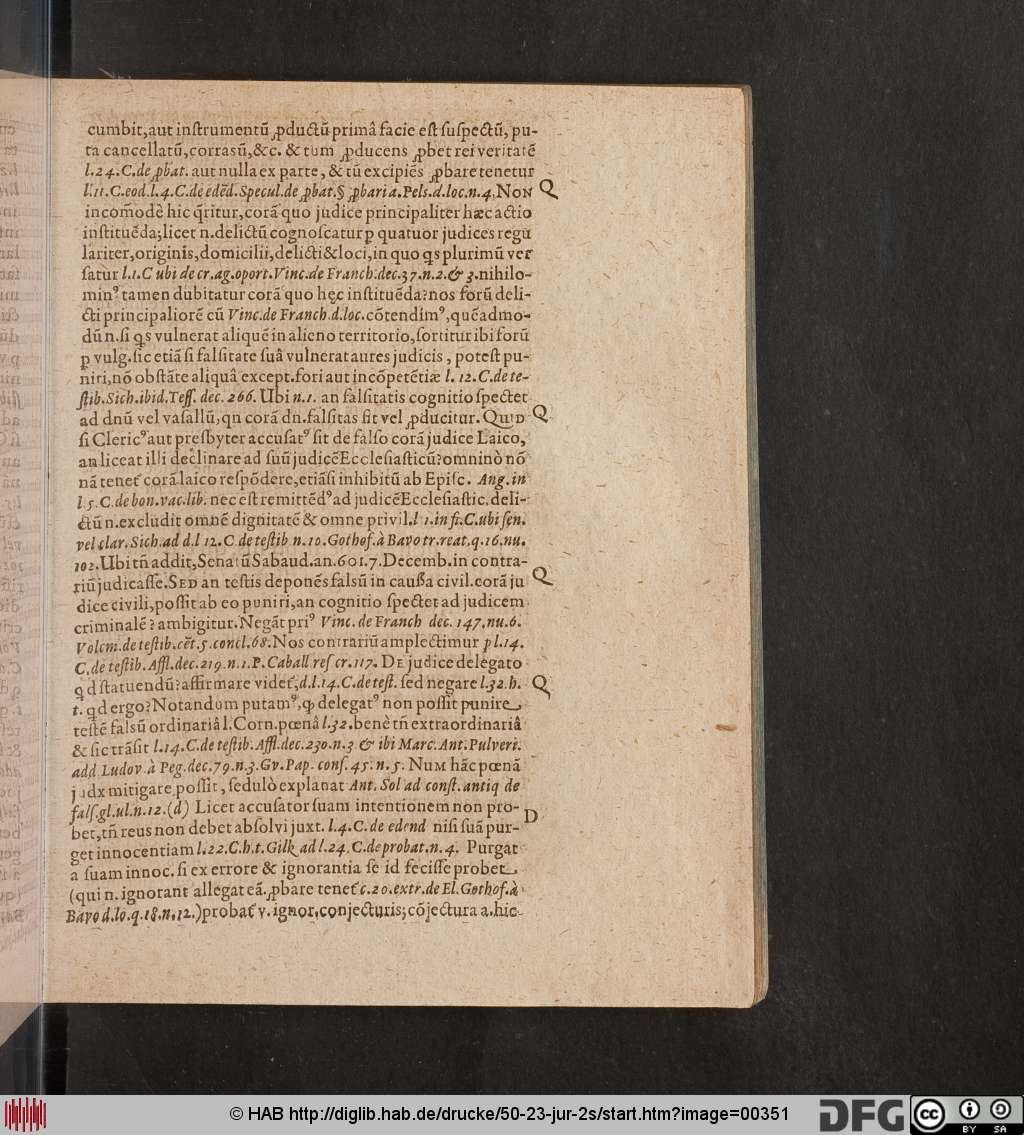 cumbit,aut inſtrumentũ ꝓductũ primâ facie eſt ſuſpectũ, pu-
ta cancellatũ,corrasũ,&c. & tum ꝓducens ꝓbet rei veritatẽ
l.24.C.de ꝓbat. aut nulla ex parte, & tũ excipiẽs ꝓbare tenetur
l.11.C.eod.l.4.C.de edẽd.Specul.de ꝓbat.§ ꝓbari a.Pels.d.loc.n.4.NON
Q
incom̃odè hic q̃ritur,corã quo judice principaliter hæc actio
inſtituẽda;licet n.delictũ cognoſcatur ꝑ quatuor judices regu
lariter,originis,domicilii,delicti&loci,in quo qs plurimũ ver
ſatur l.1.C ubi de cr.ag.oport.Vinc.de Franch.dec.37.n.2.& 3.nihilo-
minꝰ tamen dubitatur corã quo hęc inſtituẽda?nos forũ deli-
cti principaliorẽ cũ Vinc.de Franch.d.loc.cõtendimꝰ,quẽadmo-
dũ n.ſi qs vulnerat aliquẽ in alieno territorio,ſortitur ibi forũ
ꝑ vulg.ſic etiã ſi falſitate ſuâ vulnerat aures judicis, poteſt pu-
niri,nõ obſtãte aliquâ except.fori aut incõpetẽtiæ l. 12.C.de te-
ſtib.Sich.ibid.Teſſ. dec. 266. Ubi n.1. an falſitatis cognitio ſpectet
ad dnũ vel vaſallũ,qn corã dn.falſitas fit vel ꝓducitur. QUID
Q
ſi Clericꝰ aut preſbyter accuſatꝰ ſit de falſo corã judice Laico,
an liceat illi declinare ad ſuũ judicẽ Eccleſiaſticũ?omninò nõ
nã tenet᷑ corã laico reſpõdere,etiãſi inhibitũ ab Epiſc. Ang.in
l 5.C.de bon.vac.lib. nec eſt remittẽdꝰ ad judicẽ Eccleſiaſtic.deli-
ctũ n.excludit omnẽ dignitatẽ & omne privil.l 1.in fi.C.ubi ſen.
vel clar.Sich.ad d.l 12.C de teſtib n.10.Gothof.à Bavo tr.reat.q.16.nu.
102.Ubi tñ addit,Senatũ Sabaud.an.601.7.Decemb.in contra-
riũ judicaſſe.SED an teſtis deponẽs falsũ in cauſſa civil.corã ju
Q
dice civili,poſſit ab eo puniri,an cognitio ſpectet ad judicem
criminalẽ? ambigitur.Negãt priꝰ Vinc.de Franch dec. 147.nu.6.
Volcm.de teſtib.cẽt.5.concl.68.Nos contrariũ amplectimur p l.14.
C.de teſtib.Affl.dec.219.n.1.P.Caball reſ cr.117. DE judice delegato
q d ſtatuendũ?affirmare videt᷑,d.l.14.C.de teſt. ſed negare l.32.h.
Q
t. qd ergo?Notandum putamꝰ,ꝙ delegatꝰ non poſſit punire
teſtẽ falsũ ordinariâ l.Corn.pœnâ l.32.benè tñ extraordinariâ
& ſic trãſit l.14.C.de teſtib.Affl.dec.230.n.3 & ibi Marc.Ant.Pulveri.
add Ludov.à Peg.dec.79.n.3.Gv.Pap. conſ.45.n.5. NUM hãc pœnã
judx mitigare poſſit, ſedulò explanat Ant. Sol ad conſt.antiq de
falſ.gl.ul.n.12.(d) Licet accuſator ſuam intentionem non pro-
D
bet,tñ reus non debet abſolvi juxt. l.4.C.de edend niſi ſuã pur-
get innocentiam l.22.C.h.t.Gilk ad l.24.C.de probat.n.4. Purgat
a ſuam innoc. ſi ex errore & ignorantia ſe id feciſſe probet
(qui n. ignorant allegat eã.ꝓbare tenet᷑ c.20.extr.de El.Gothof.à
Bavo d.lo.q.18.n.12.)probat᷑ v.ignor.conjecturis;cõjectura a.hic
© HAB http://diglib.hab.de/drucke/50-23-jur-2s/start.htm?image=00351
DFG
cc
BY SA